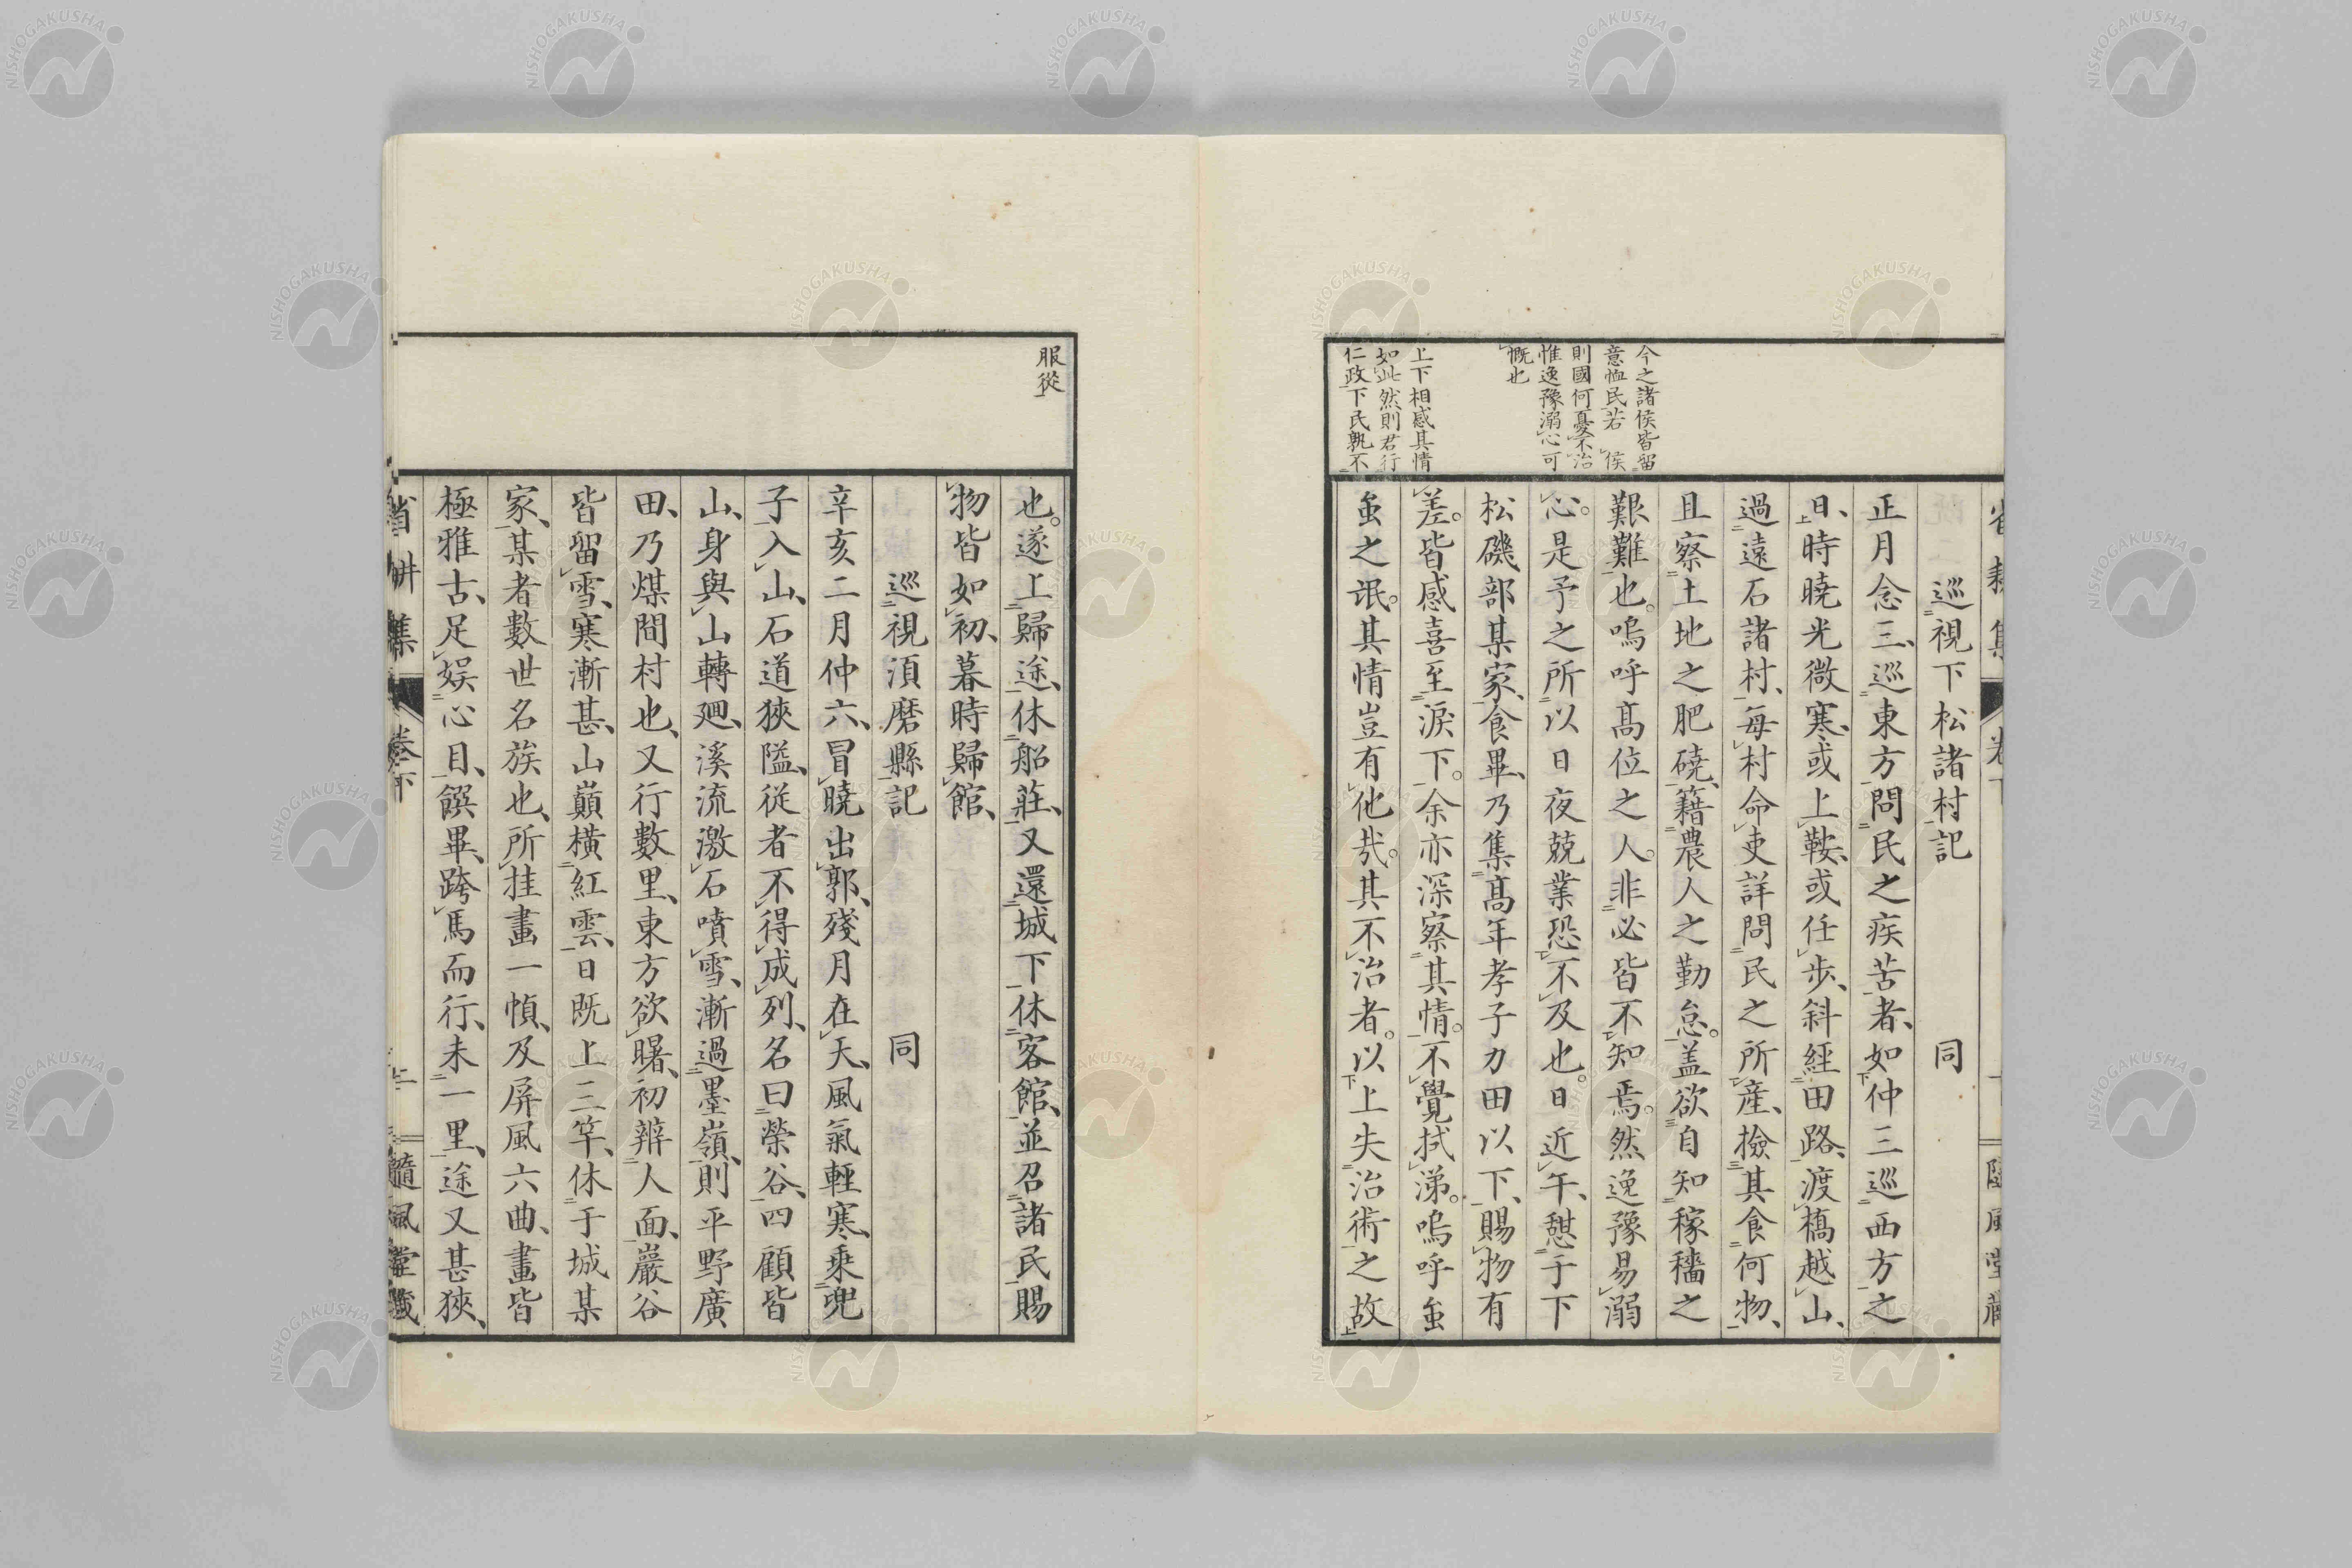 巡視下松諸村記　同
正月念三、巡東方問民之疾苦者、如仲三巡西方之
日、時曉光微寒、或上鞍、或任步、斜經田路、渡橋越山、
過遠石諸村、每村命吏詳問民之所產、撿其食何物、
且察土地之肥磽、籍農人之勤怠。盖欲自知稼穡之
艱難也。嗚呼高位之人。非必皆不知焉。然逸豫易溺
心。是予之所以日夜兢業恐不及也。日近午、憇于下
松磯部某家、食畢、乃集高年孝子力田以下、賜物有
差。皆感喜至淚下。余亦深察其情。不覺拭涕。嗚呼䖝
䖝之氓。其情豈有他㢤。其不治者。以上失治術之故
今之諸侯皆留
意恤民若 侯
則國何憂不治
惟逸豫溺心可
慨也
上下相感其情
如此然則君行
仁政下民孰不
服從
也。遂上歸途、休船莊、又還城下休客館、並召諸民賜
物皆如初、暮時歸館、
巡視須磨縣記　同
辛亥二月仲六、冒曉出郭、殘月在天、風氣輕寒、乘兜
子入山、石道狹隘、從者不得成列、名曰榮谷、四顧皆
山、身與山轉廻、溪流激石噴雪、漸過墨嶺、則平野廣
田、乃煤間村也、又行數里、東方欲曙、初辨人面、巖谷
皆留雪、寒漸甚、山巔橫紅雲、日既上三竿、休于城某
家、某者數世名族也、所挂畫一幀、及屏風六曲、畫皆
極雅古、足娛心目、饌畢、跨馬而行、未一里、途又甚狹、
省耕集　卷下　二　隨風堂藏